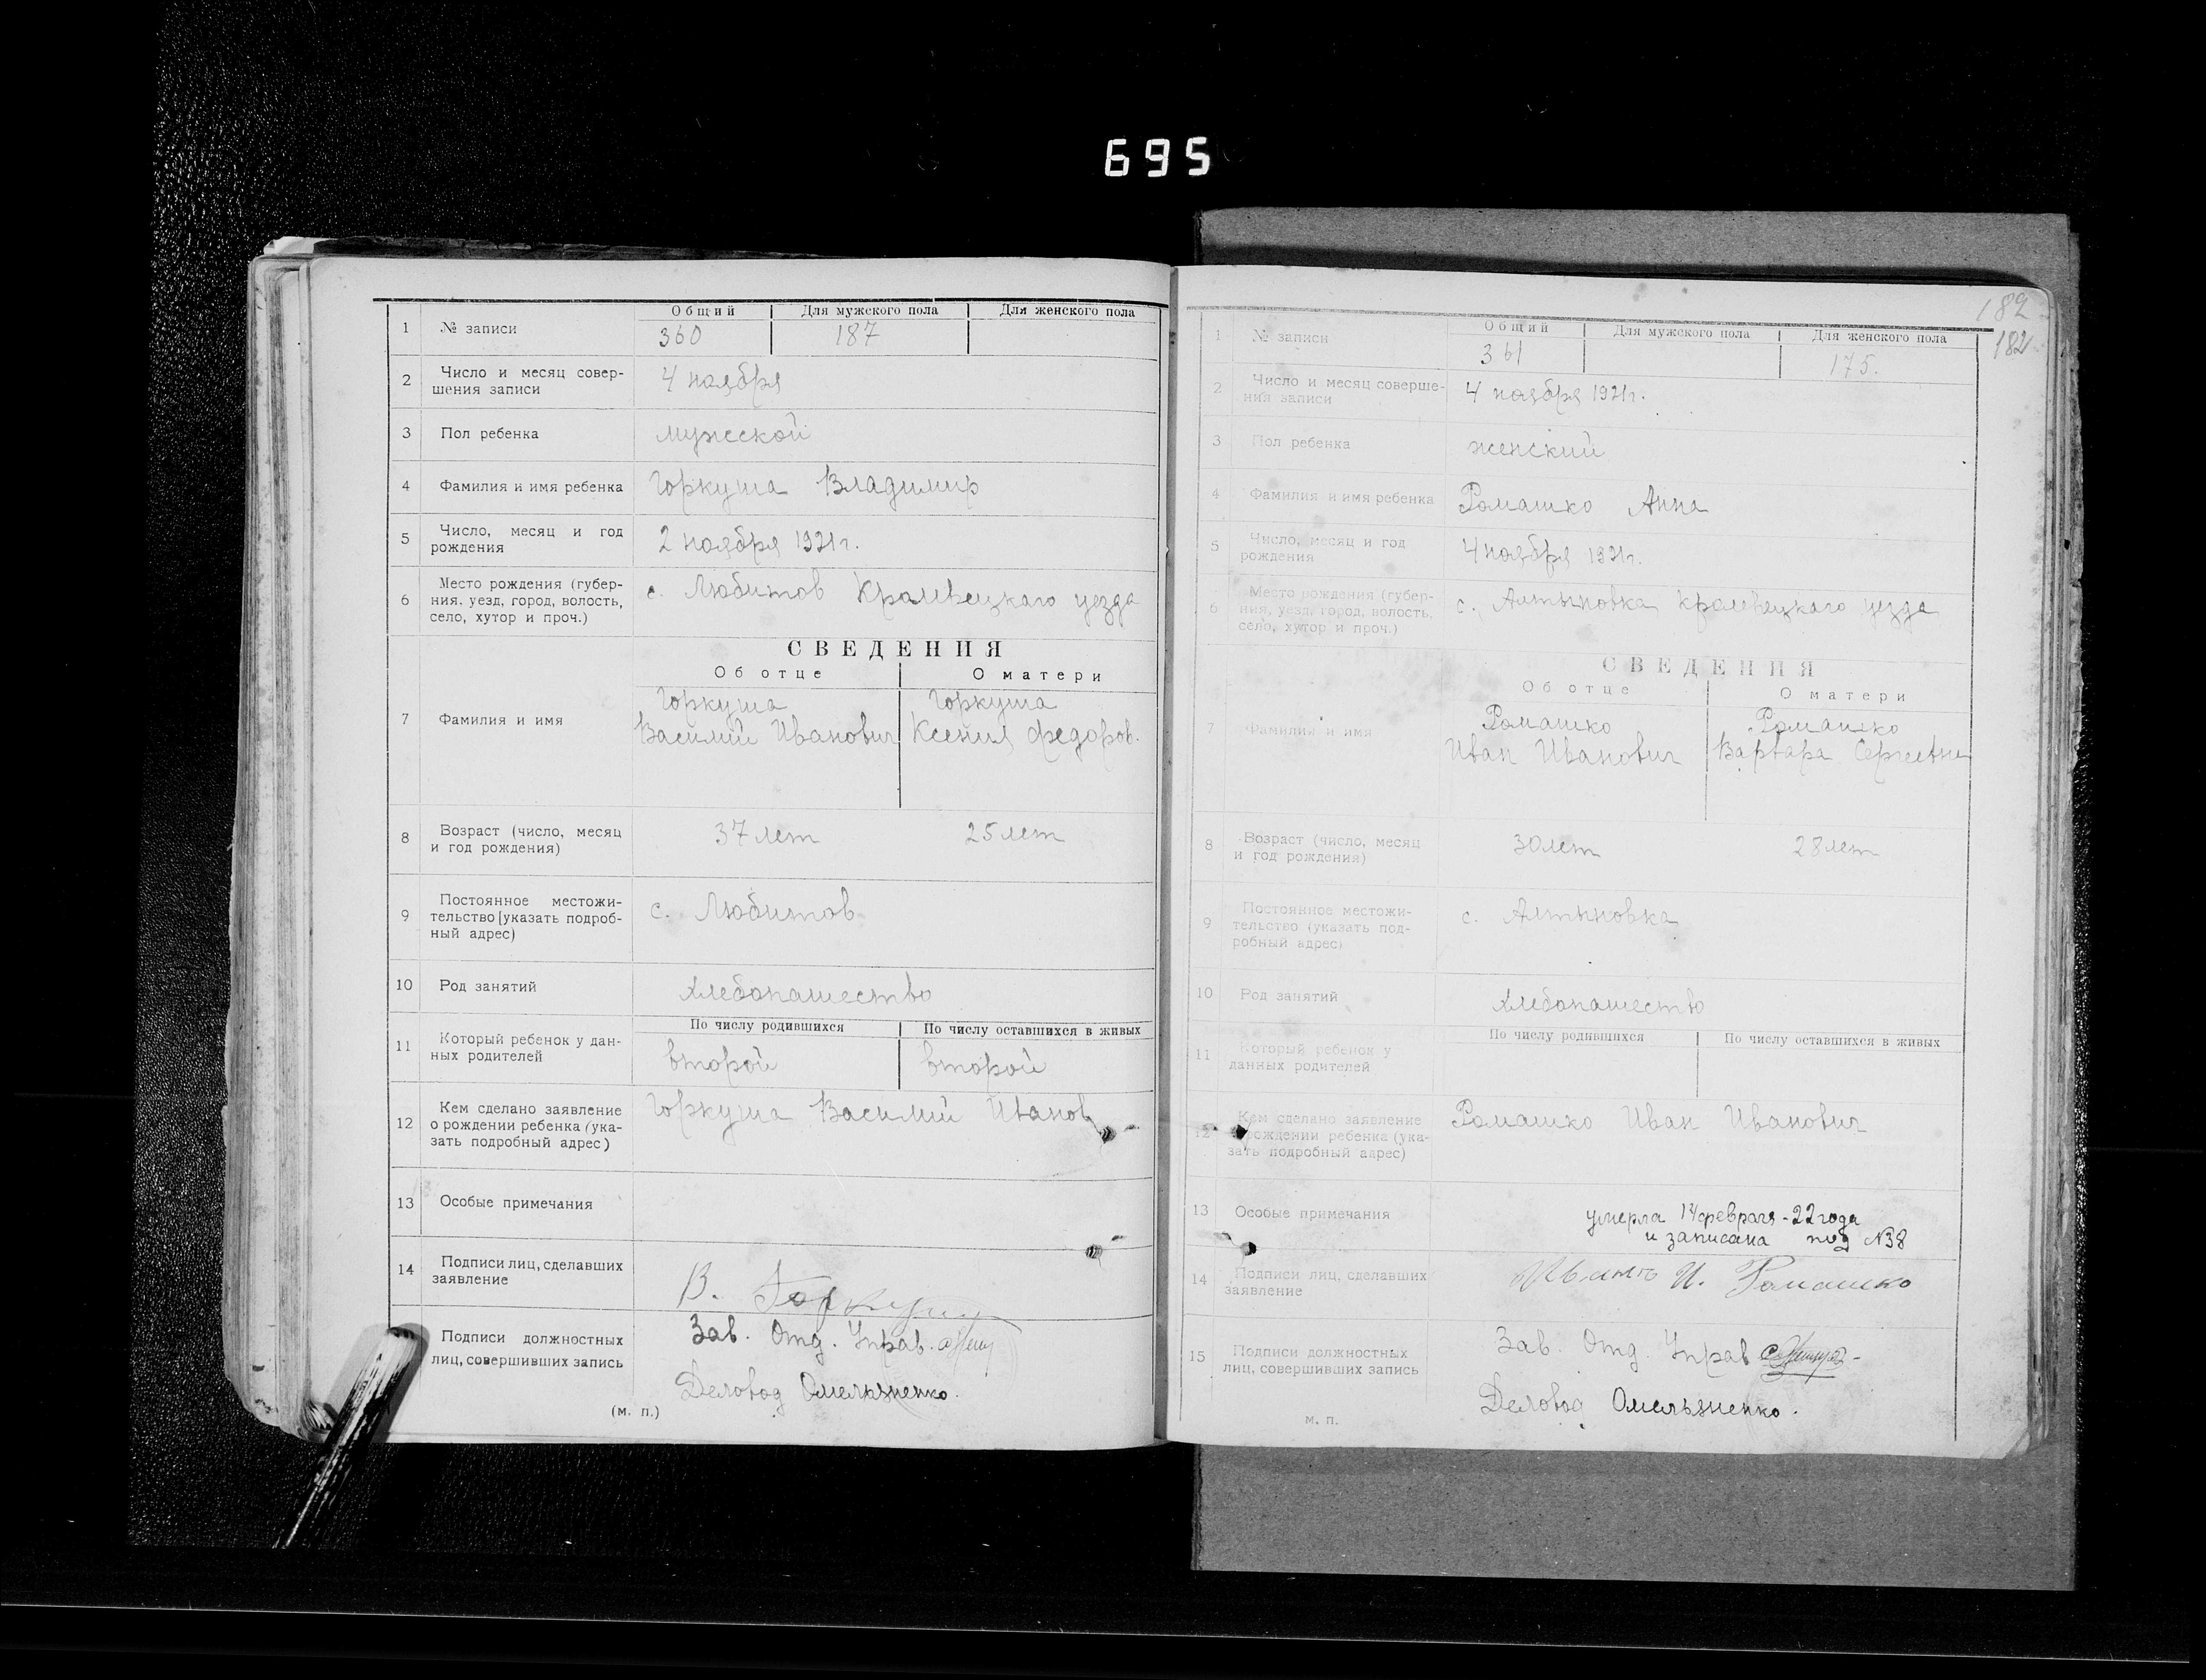 695
1 № записи Общий Для мужского пола Для женского пола
360 187
2 Число и месяц совер-
шения записи 4 ноября
3 Пол ребенка мужеской
4 Фамилия и имя ребенка Горкуша Владимир
5 Число, месяц и год
рождения 2 ноября 1921 г.
6 Место рождения (губер-
ния. уезд, город, волость,
село, хутор и проч.) с. Любитов Кролевецкаго уезда
СВЕДЕНИЯ
Об отце О матери
7 Фамилия и имя
Горкуша Горкуша
Василий Иванович Ксения Федоров.
8 Возраст (число, месяц
и год рождения) 37 лет 25 лет
9 Постоянное местожи-
тельство [указать подроб-
ный адрес) с. Любитов
10 Род занятий хлебопашество
11 Который ребенок у дан-
ных родителей
По числу родившихся По числу оставшихся в живых
второй второй
12 Кем сделано заявление
о рождении ребенка (ука-
зать подробный адрес) Горкуша Василий Иванов
13 Особые примечания
14 Подписи лиц, сделавших
заявление В. Горкуша
Подписи должностных
лиц, совершивших запись
Зав. Отд. Управ.
Деловод Омельяненко.
(м. п.)
182
182
1 № записи Общий Для мужского пола Для женского пола
361 175.
2 Число и месяц соверше-
ния записи 4 ноября 1921 г.
3 Пол ребенка женский
4 Фамилия и имя ребенка Ромашко Анна
5 Число, месяц и год
рождения 4 ноября 1921 г.
6 Место рождения (губер-
ния, уезд, город, волость,
село, хутор и проч.) с. Алтыновка Кролевецкаго уезда
СВЕДЕНИЯ
Об отце О матери
7 Фамилия и имя
Ромашко Ромашко
Иван Иванович Варвара Сергеевна
8 Возраст (число, месяц
и год рождения) 30 лет 28 лет
9 Постоянное местожи-
тельство (указать под-
робный адрес) с. Алтыновка
10 Род занятий хлебопашество
11 Который ребенок у
данных родителей
По числу родившихся По числу оставшихся в живых
12 Кем сделано заявление
о рождении ребенка (ука-
зать подробный адрес) Ромашко Иван Иванович
13 Особые примечания
умерла 14 февраля - 22 года
и записана под №38
14 Подписи лиц, сделавших
заявление Иванъ И. Ромашко
15 Подписи должностных
лиц, совершивших запись
Зав. Отд. Управ
Деловод Омельяненко.
м. п.